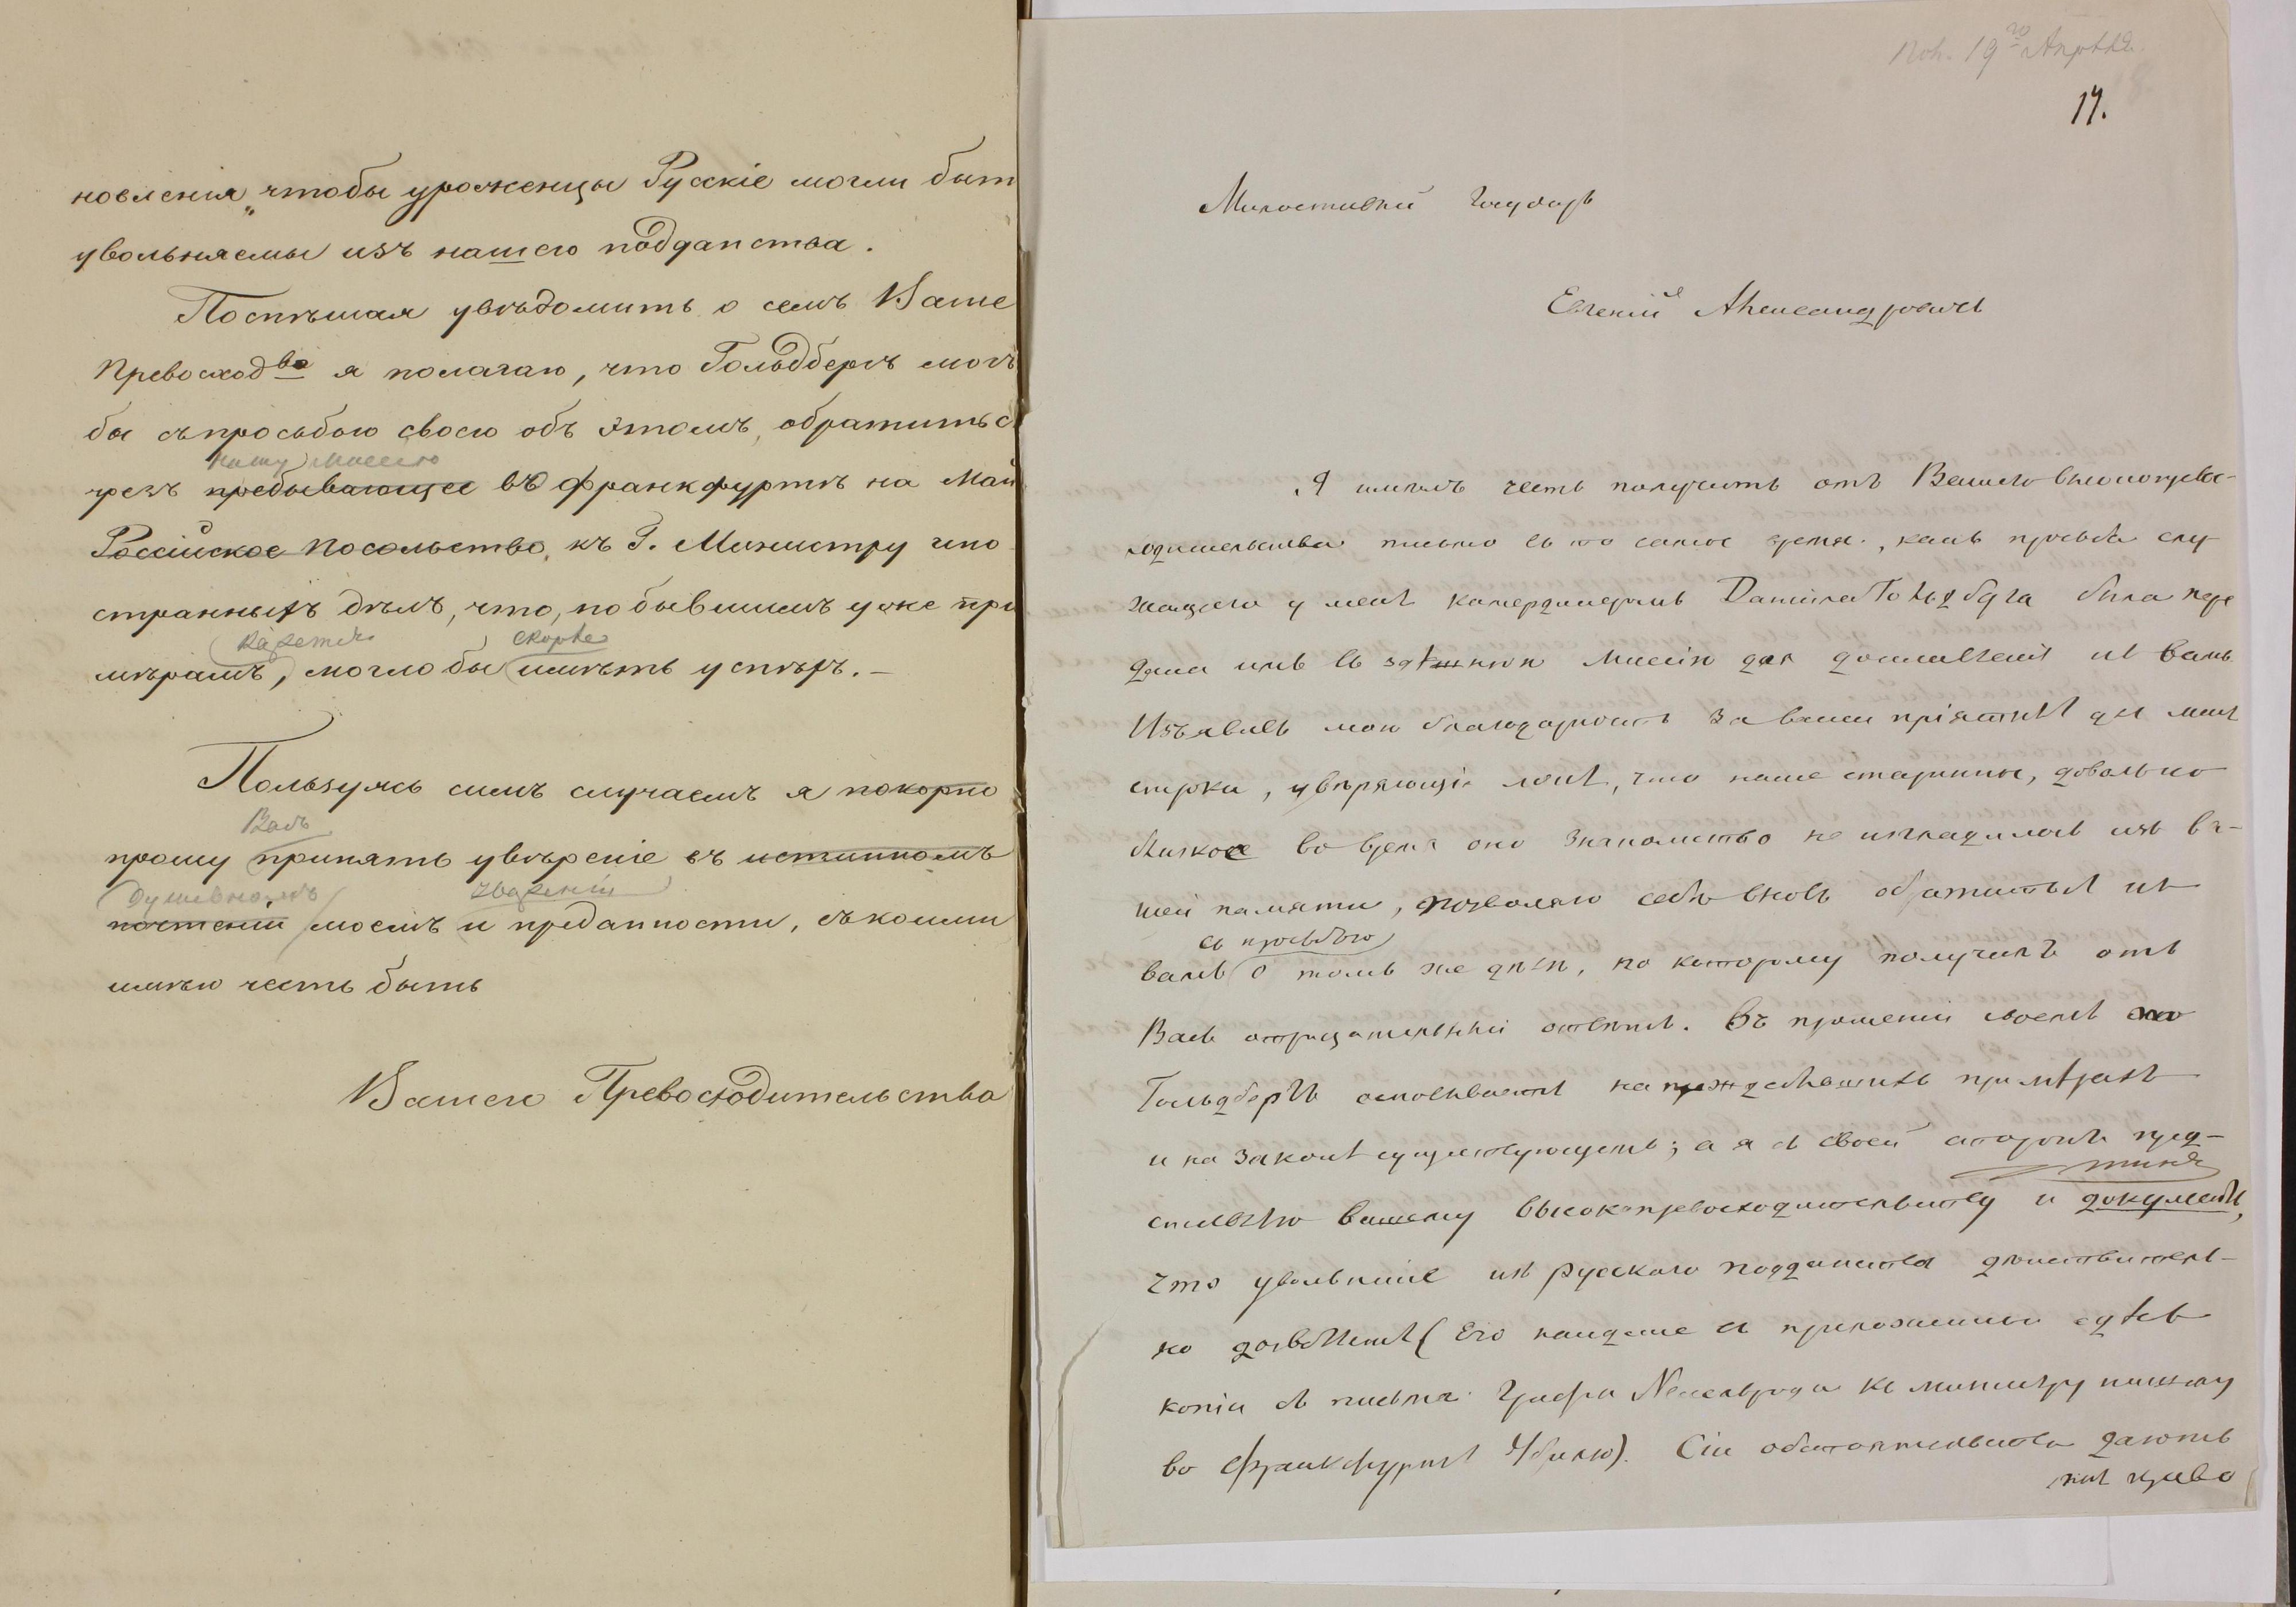 новленія, чтобы уроженцы Русскіе могли быт
увольняемы изъ нашего подданства.
Поспѣшая увѣдомить о семъ Ваше
Превосход<sup>во</sup> я полагаю, что Гольдбергъ могъ
бы съ просьбою своею объ этомъ, обратиться
нашу Миссію
чрезъ пребывающее въ Франкфуртѣ на Май
Россійское посольство, къ Г. Министру ино
странныхъ дѣлъ, что, по бывшимъ уже при
кажется скорѣе
мѣрамъ, могло бы имѣть успѣхъ. —
Пользуясь симъ случаемъ я покорно
Васъ
прошу принять увѣреніе въ истинномъ
душевномъ уваженіи
почтеніи моемъ и преданности, съ коими
имѣю честь быть
Вашего Превосходительства
Пол. 19<sup>го</sup> Апрѣля.
17.
Милостивый Государь
Евгеній Александровичь
Я имѣлъ честь получить отъ Вашего высокопревос-
ходительства письмо въ то самое время, какъ просьба слу
жащего у меня камердинеромъ Данiила Гольдберга была пере
дана имъ въ здѣшнюю миссію для доставленія къ вамъ
Изъявивъ мою благодарность за ваши пріятныя для меня
строки, увѣряющія меня, что наше старинное, довольно
близкое во время оно знакомство не изгладилось изъ ва-
шей памяти, позволяю себѣ вновь обратиться къ
съ просьбою
вамъ о томъ же дѣлѣ, по которому получилъ отъ
Васъ отрицательный отвѣтъ. Въ прошеніи своемъ
Гольдбергъ основывается на преждебывшихъ примѣрахъ
и на законѣ существующемъ; а я съ своей стороны пред-
ставлю вашему высокопревосходительству и документъ,
что увольненіе изъ русскаго подданства дѣйствитель-
но дозволяемо (Его найдете въ приложенной здѣсь
копіи съ письма Графа Нессельроде къ министру нашему
во Франкфуртѣ Убрилю). Сіи обстоятельства даютъ
мнѣ право